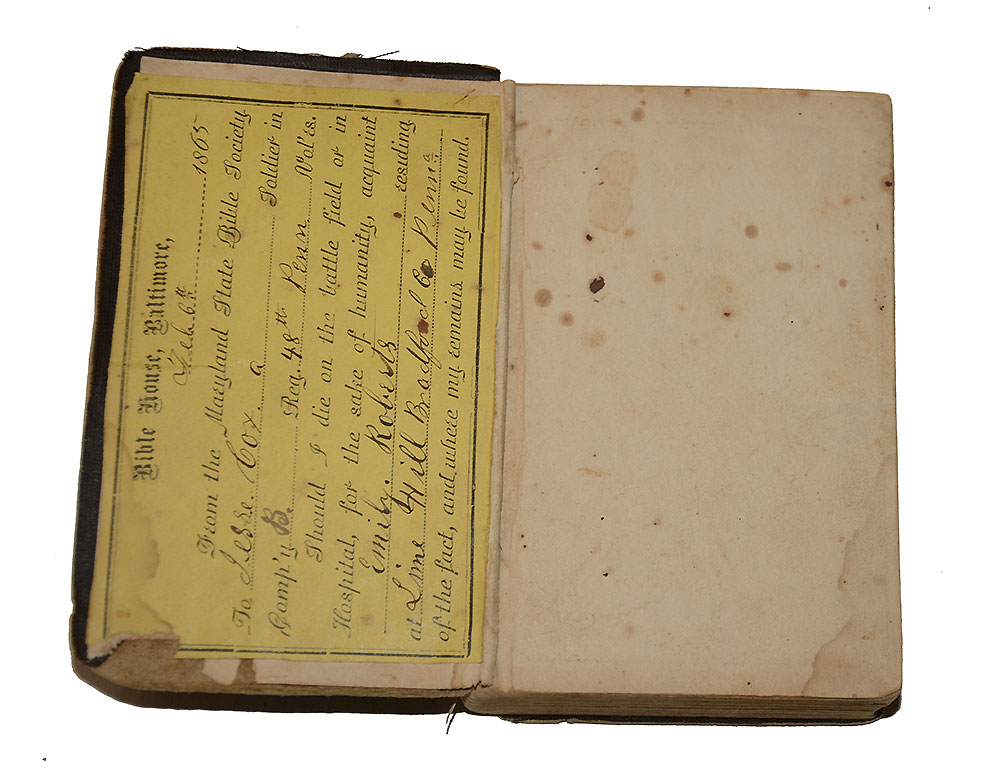 Bible House, Baltimore,
Feb 6th 1865
From the Maryland State Bible Society
To Jesse. Cox. a Soldier in
Comp'y B. Reg. 48th Penn Vol's.
Should I die on the battle field or in
Hospital, for the sake of humanity, acquaint
Emily. Roberts residing
at Lime Hill Bradford Co Penna
of the fact, and where my remains may be found.